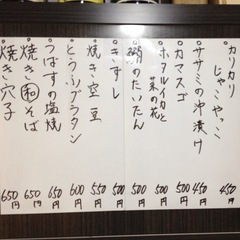 カリカリじゃこやっこ 450円
ササミの沖漬け 450円
カマスゴ 500円
ホタルイカと菜の花 500円
鯛のたいたん 500円
きずし 500円
焼き空豆 550円
とうふグラタン 600円
つばすの塩焼 650円
焼き和そば 650円
焼き穴子 650円